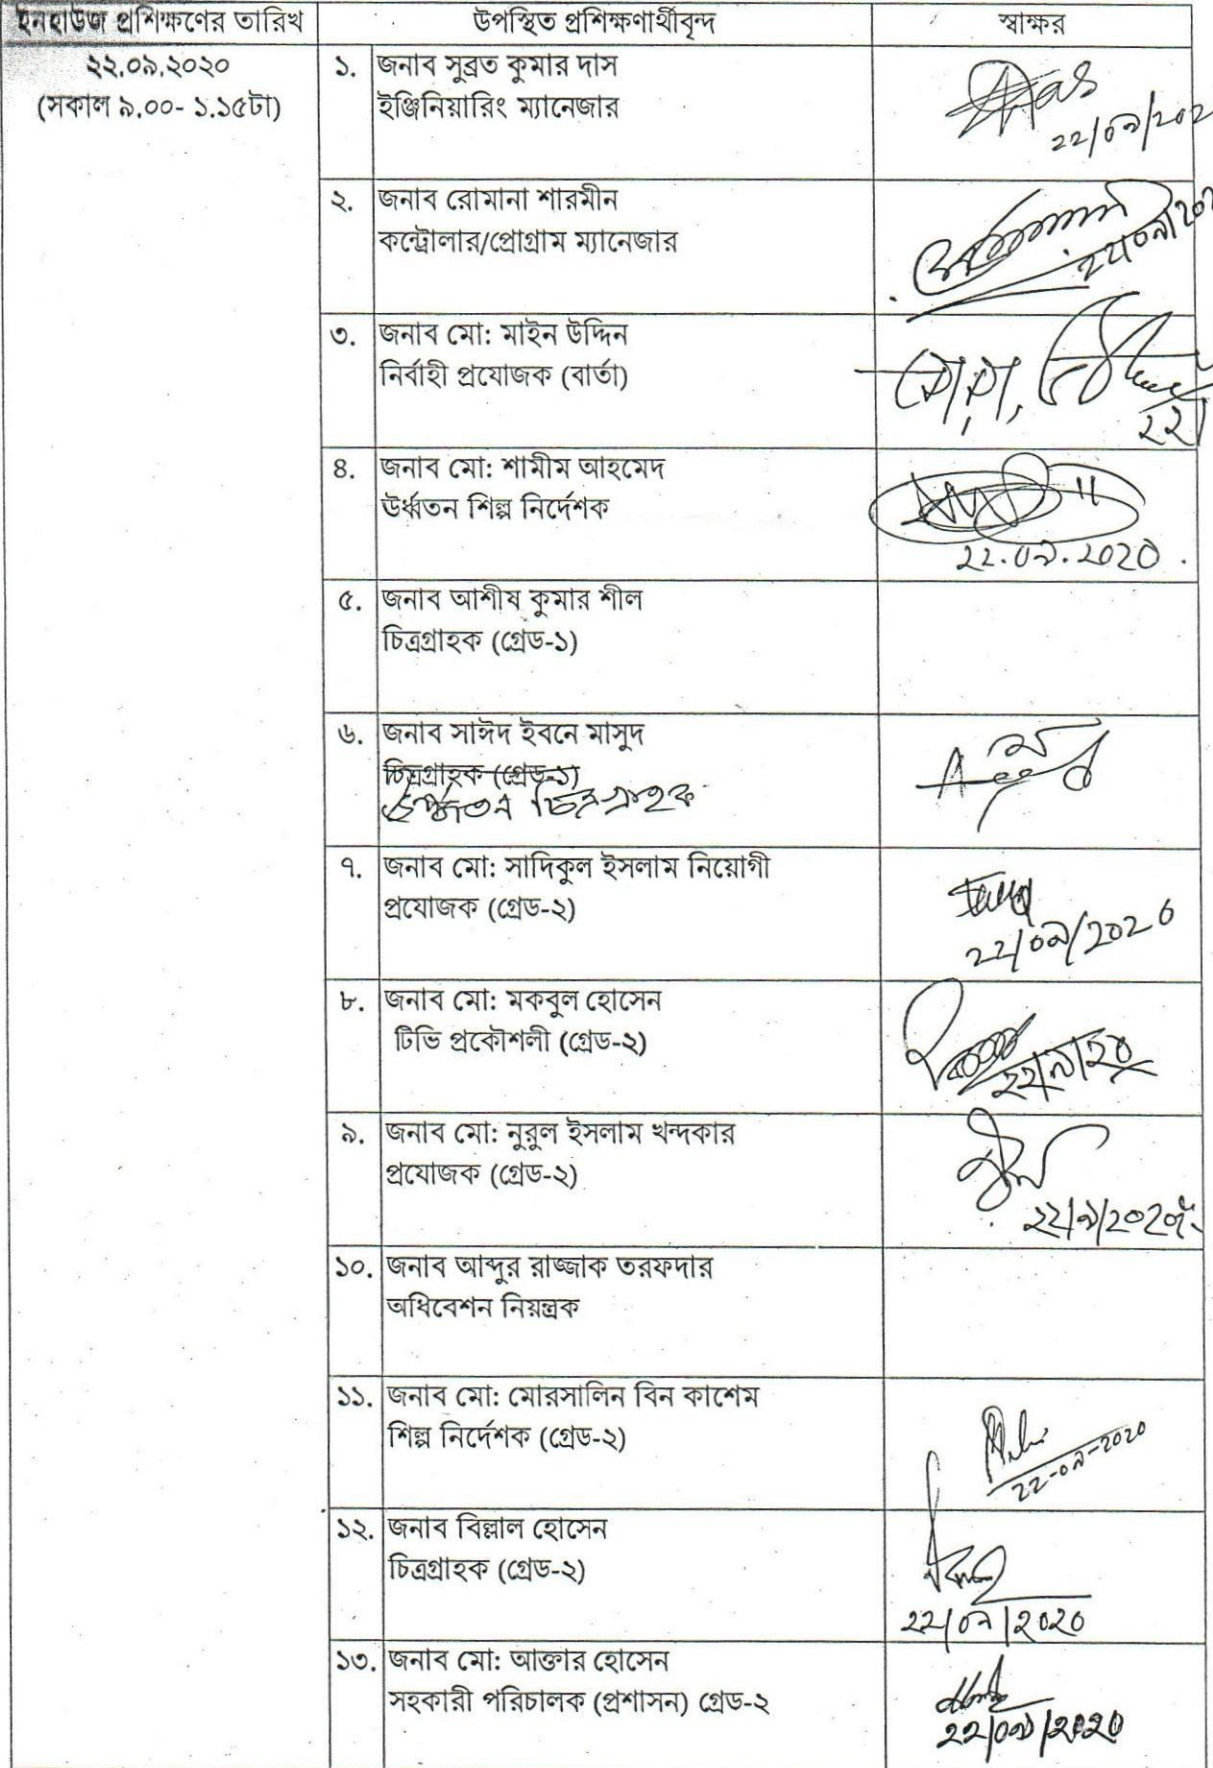 ইনহাউজ প্রশিক্ষণের তারিখ উপস্থিত প্রশিক্ষণার্থীবৃন্দ স্বাক্ষর
২২.০৯.২০২০
(সকাল ৯.০০- ১.১৫টা)
১. জনাব সুব্রত কুমার দাস
ইঞ্জিনিয়ারিং ম্যানেজার
Das
২২/০৯/২০২
২. জনাব রোমানা শারমীন
কন্ট্রোলার/প্রোগ্রাম ম্যানেজার
২২/০৯/২০২
৩. জনাব মো: মাইন উদ্দিন
নির্বাহী প্রযোজক (বার্তা)
২২/
৪. জনাব মো: শামীম আহমেদ
উর্ধ্বতন শিল্প নির্দেশক
২২.০৯.২০২০
৫. জনাব আশীষ কুমার শীল
চিত্রগ্রাহক (গ্রেড-১)
৬. জনাব সাঈদ ইবনে মাসুদ
চিত্রগ্রাহক (গ্রেড-১)
উর্ধ্বতন চিত্রগ্রাহক
৭. জনাব মো: সাদিকুল ইসলাম নিয়োগী
প্রযোজক (গ্রেড-২)
২২/০৯/২০২০
৮. জনাব মো: মকবুল হোসেন
টিভি প্রকৌশলী (গ্রেড-২)
২২/৯/২০
৯. জনাব মো: নুরুল ইসলাম খন্দকার
প্রযোজক (গ্রেড-২)
২২/৯/২০২০ইং
১০. জনাব আব্দুর রাজ্জাক তরফদার
অধিবেশন নিয়ন্ত্রক
১১. জনাব মো: মোরসালিন বিন কাশেম
শিল্প নির্দেশক (গ্রেড-২)
২২-০৯-২০২০
১২. জনাব বিল্লাল হোসেন
চিত্রগ্রাহক (গ্রেড-২)
২২/০৯/২০২০
১৩. জনাব মো: আক্তার হোসেন
সহকারী পরিচালক (প্রশাসন) গ্রেড-২
২২/০৯/২০২০